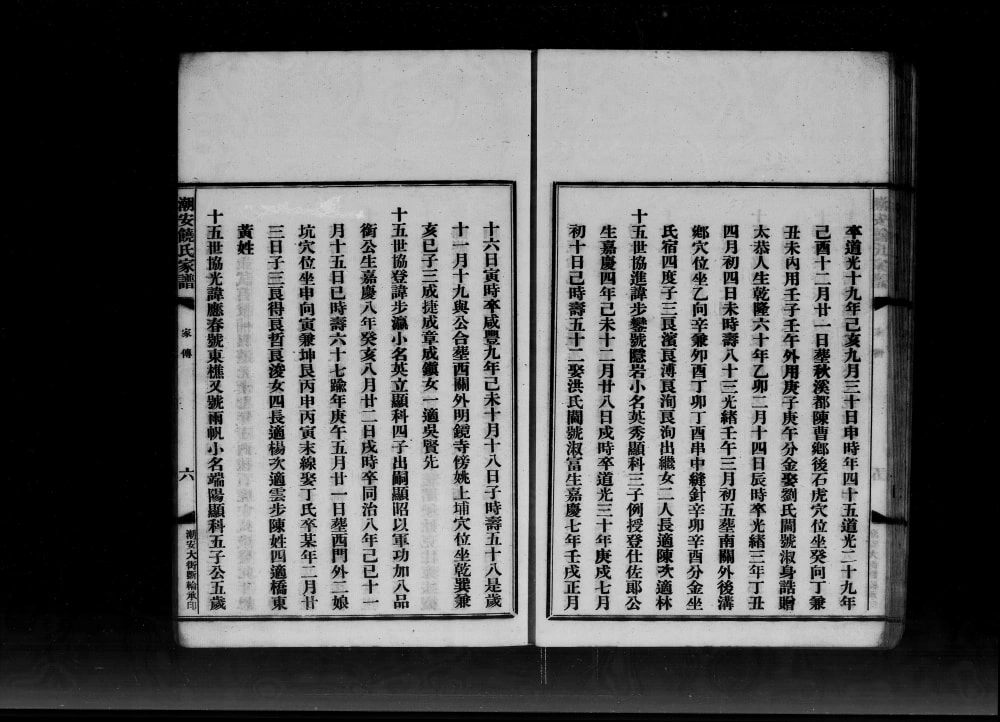 卒道光十九年己亥九月三十日申時年四十五道光二十九年
己酉十二月廿一日塟秋溪都陳曹鄉後石虎穴位坐癸向丁兼
丑未內用壬子壬午外用庚子庚午分金娶劉氏閫號淑身誥贈
太恭人生乾隆六十年乙卯二月十四日辰時卒光緒三年丁丑
四月初四日未時壽八十三光緒壬午三月初五塟南關外後溝
鄉穴位坐乙向辛兼卯酉丁卯丁酉串中縫針辛卯辛酉分金坐
氏宿四度子三艮濱艮溥艮洵艮洵出繼女二人長適陳次適林
十五世協進諱步鑾號隱岩小名英秀顯科三子例授登仕佐郎公
生嘉慶四年己未十二月廿八日戍時卒道光三十年庚戍七月
初十日己時壽五十二娶洪氏閫號淑富生嘉慶七年壬戌正月
十六日寅時卒咸豐九年己未十月十八日子時壽五十八是歲
十一月十九與公合塟西關外明鏡寺傍姚上埔穴位坐乾巽兼
亥已子三成捷成章成鎭女一適吳賢先
十五世協登諱步瀛小名英立顯科四子出嗣顯昭以軍功加八品
銜公生嘉慶八年癸亥八月廿二日戍時卒同治八年己巳十一
月十五日巳時壽六十七踰年庚午五月廿一日塟西門外二娘
坑穴位坐申向寅兼坤艮丙申丙寅末線娶丁氏卒某年二月廿
三日子三艮得艮哲艮淩女四長適楊次適雲步陳姓四適橋東
黃姓
十五世協光諱應春號東樵又號雨帆小名端陽顯科五子公五歲
潮安饒氏家譜
家傳
六
潮安大街斲輪承印